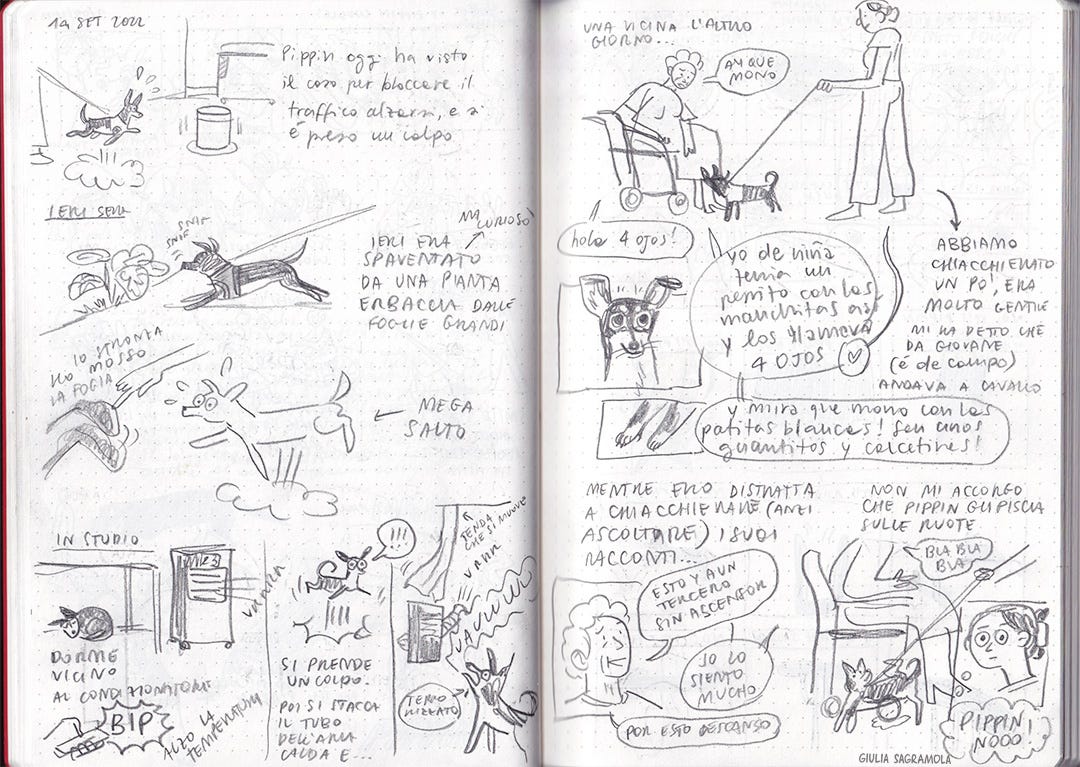 14 SET 2022
Pippin oggi ha visto
il coso per bloccare il
traffico alzarsi, e si
é preso un colpo
IERI SERA
SNIF
SNIF
SNIF
MA CURIOSO
IERI ERA
SPAVENTATO
DA UNA PIANTA
ERBACCIA DALLE
FOGLIE GRANDI
IO STRONZA
HO MOSSO
LA FOGLIA
MEGA
SALTO
IN STUDIO
DORME
VICINO
AL CONDIZIONATORE
BIP
ALZO LA
TEMPERATURA
!!!
SI PRENDE
UN COLPO.
POI SI STACCA
IL TUBO
DELL'ARIA
CALDA E...
TENDA
CHE SI MUOVE
UNA VICINA L'ALTRO
GIORNO...
AY QUE
MONO
hola 4 ojos!
yo de niña
tenia un
perrito con las
manchitas así
y los llamava
4 OJOS
ABBIAMO
CHIACCHIERATO
UN PO', ERA
MOLTO GENTILE
MI HA DETTO CHE
DA GIOVANE
(é de campo)
ANDAVA A CAVALLO
y mira que mono con las
patitas blancas! Son unos
guantitos y calcetines!
MENTRE ERO DISTRATTA
A CHIACCHIERARE (ANZI
ASCOLTARE) I SUOI
RACCONTI...
ESTOY A UN
TERCERO
SIN ASCENSOR
JO LO
SIENTO
MUCHO
POR ESTO DESCANSO
NON MI ACCORGO
CHE PIPPIN GLI PISCIA
SULLE RUOTE
BLA BLA
BLA
PIPPIN
NOOO!
GIULIA SAGRAMOLA